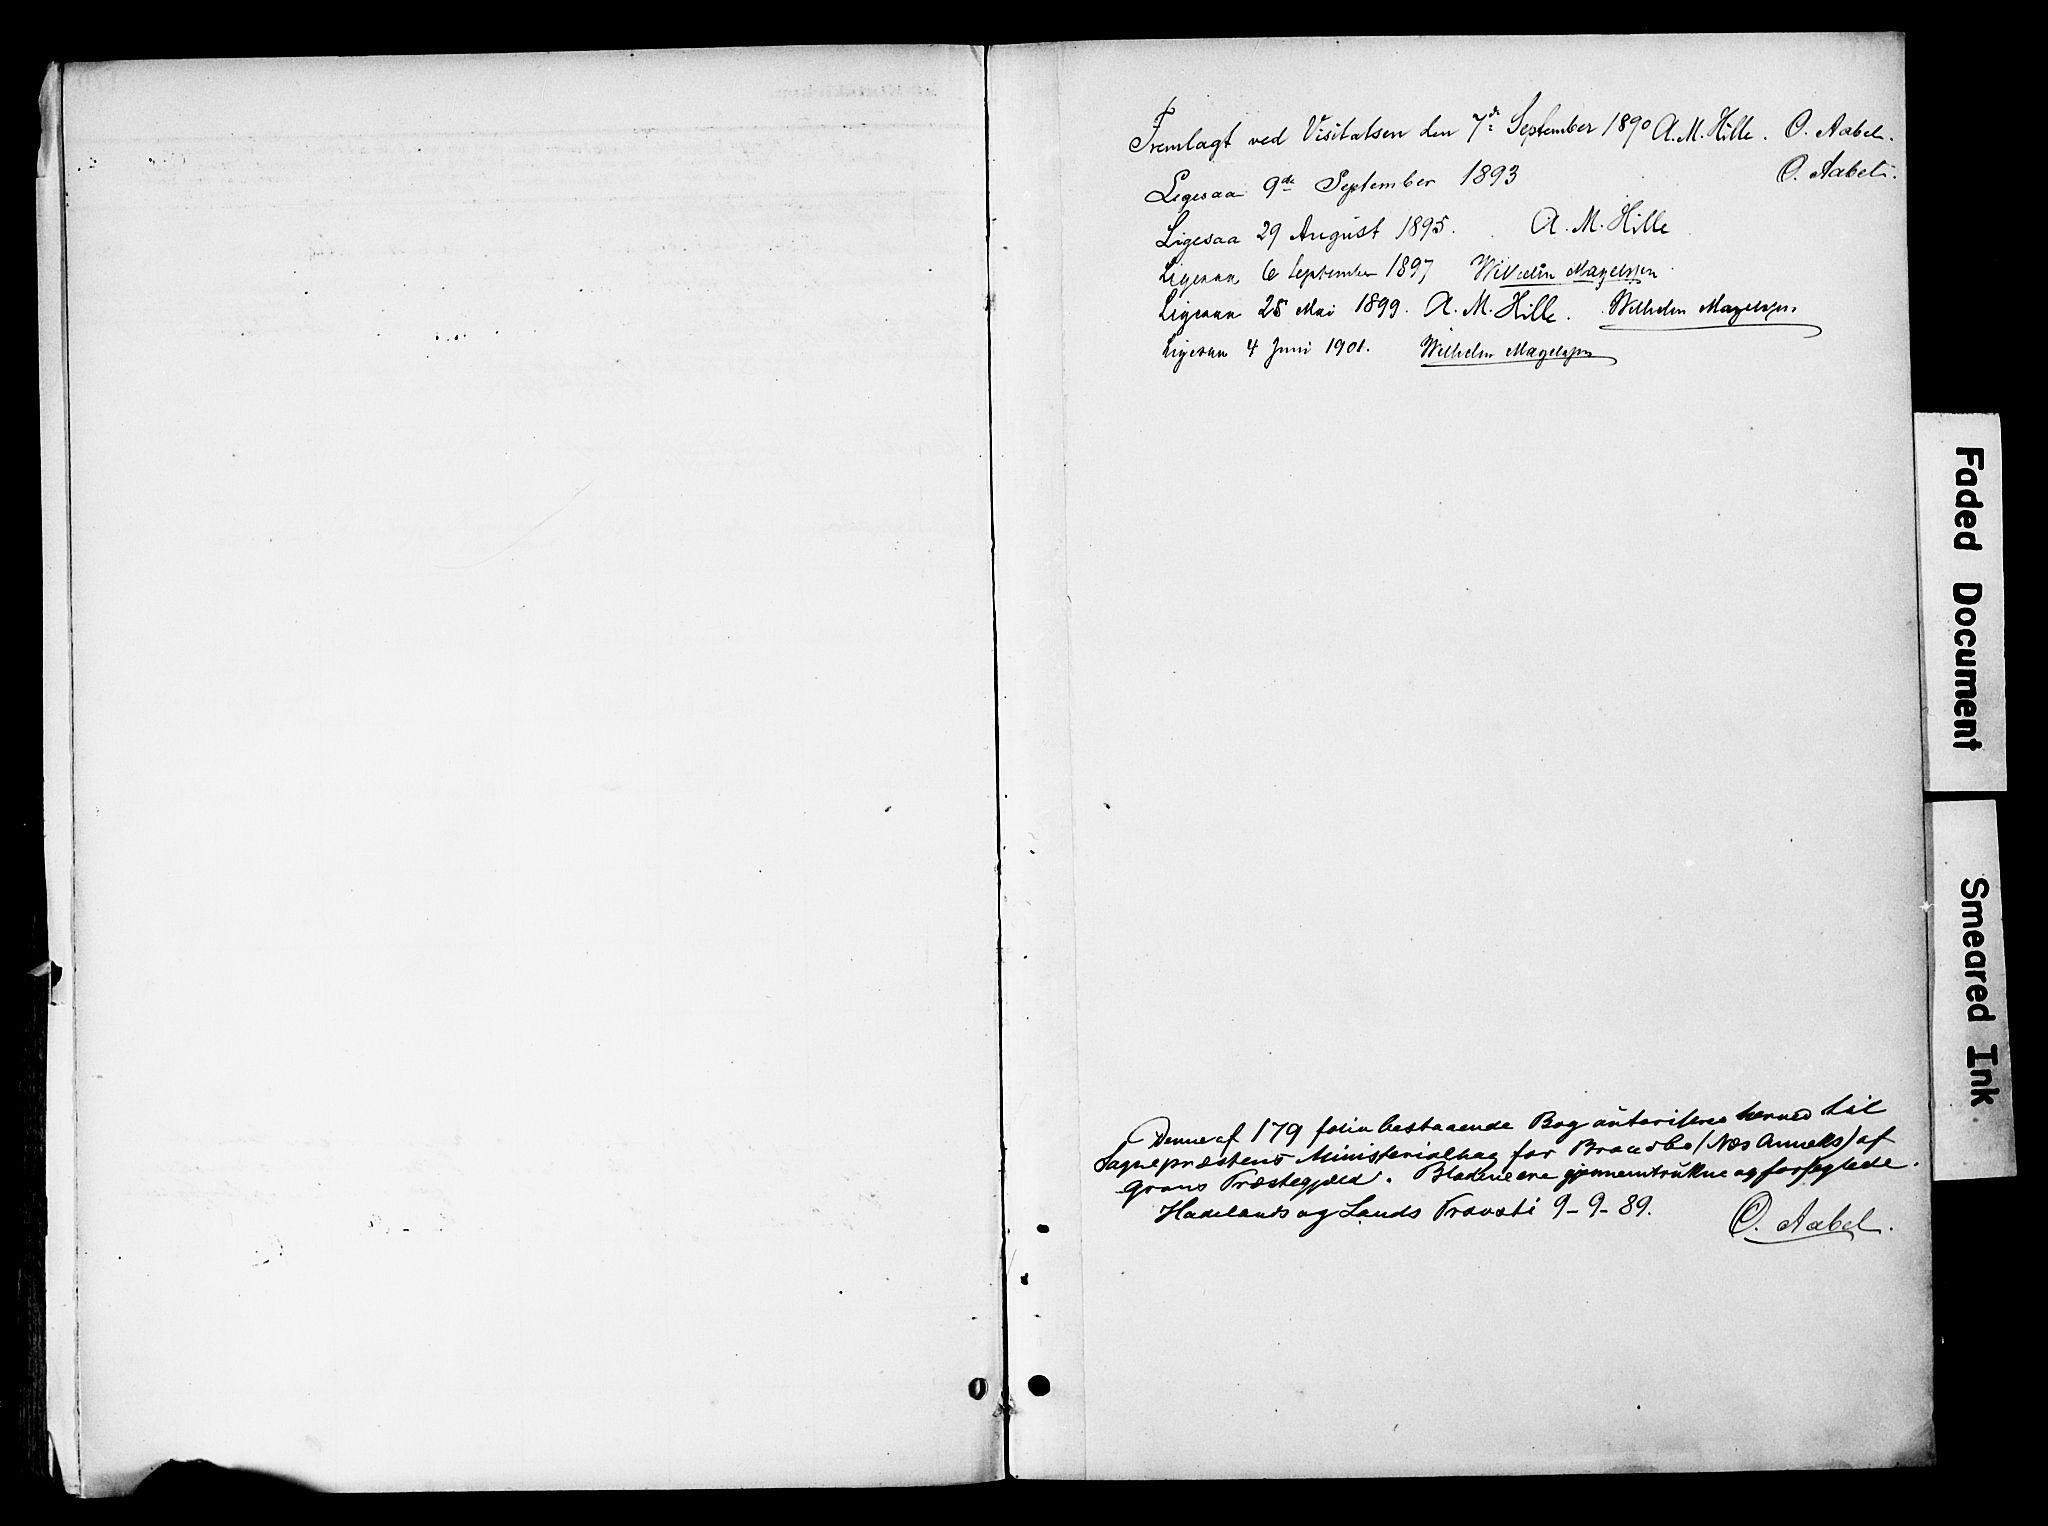 Fremlagt ved Visitatsen den 7de September 1890 A. M. Hille. O. Aabel.
Ligesaa 9de September 1893 O. Aabel.
Ligesaa 29 August 1895. A. M. Hille
Ligesaa 6 September 1897 Wilhelm Magelssen
Ligesaa 25 Mai 1899. A. M. Hille. Wilhelm Magelssen
Ligesaa 4 Juni 1901. Wilhelm Magelssen
Denne af 179 folier bestaaende Bog autoriseres herved til
Sognepræstens Ministerialbog for Brandbo (Næs Anneks) af
Grans Præstegjæld. Bladene ere gjennemtrukne og forseglede.
Hadelands og Lands Provsti 9-9-89. O. Aabel.
Faded Document
Smeared Ink